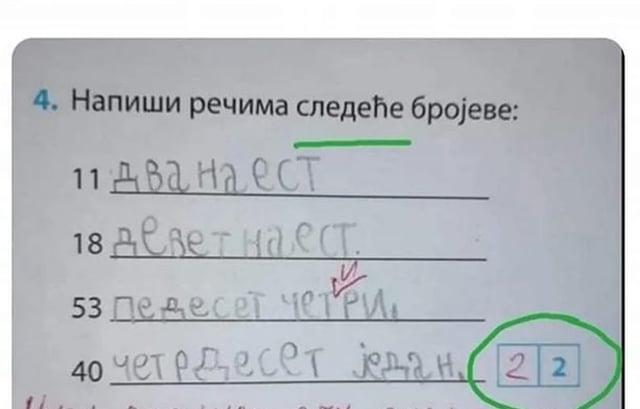 4. Напиши речима следеће бројеве:
11 дванаест
18 деветнаест.
и
53 педесет четри.
40 четрдесет један. 2 2